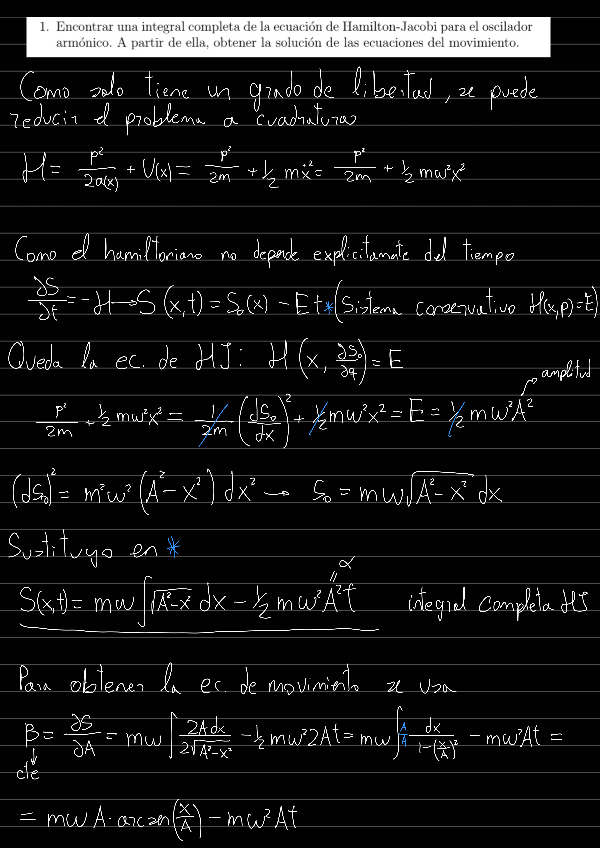 1. Encontrar una integral completa de la ecuación de Hamilton-Jacobi para el oscilador
armónico. A partir de ella, obtener la solución de las ecuaciones del movimiento.
Como solo tiene un grado de libertad, se puede
reducir el problema a cuadraturas
H = p²/2a(x) + U(x) = p²/2m + 1/2 mẋ² = p²/2m + 1/2 mω²x²
Como el hamiltoniano no depende explicitamente del tiempo
∂S/∂t = -H → S(x,t) = S₀(x) - Et * (Sistema conservativo H(x,p)=E)
Queda la ec. de HJ: H(x, ∂S₀/∂q) = E
amplitud
p²/2m + 1/2 mω²x² = 1/2m (dS₀/dx)² + 1/2 mω²x² = E = 1/2 mω²A²
(dS₀)² = m²ω² (A² - x²) dx² → S₀ = mω√(A² - x²) dx
Sustituyo en *
α
S(x,t) = mω ∫ √(A²-x²) dx - 1/2 mω²A²t integral completa HJ
Para obtener la ec. de movimiento se usa
β = ∂S/∂A = mω ∫ 2A dx/2√(A²-x²) - 1/2 mω² 2At = mω ∫ A/A dx/1-(x/A)² - mω²At =
cte
= mωA · arcsen(x/A) - mω²At